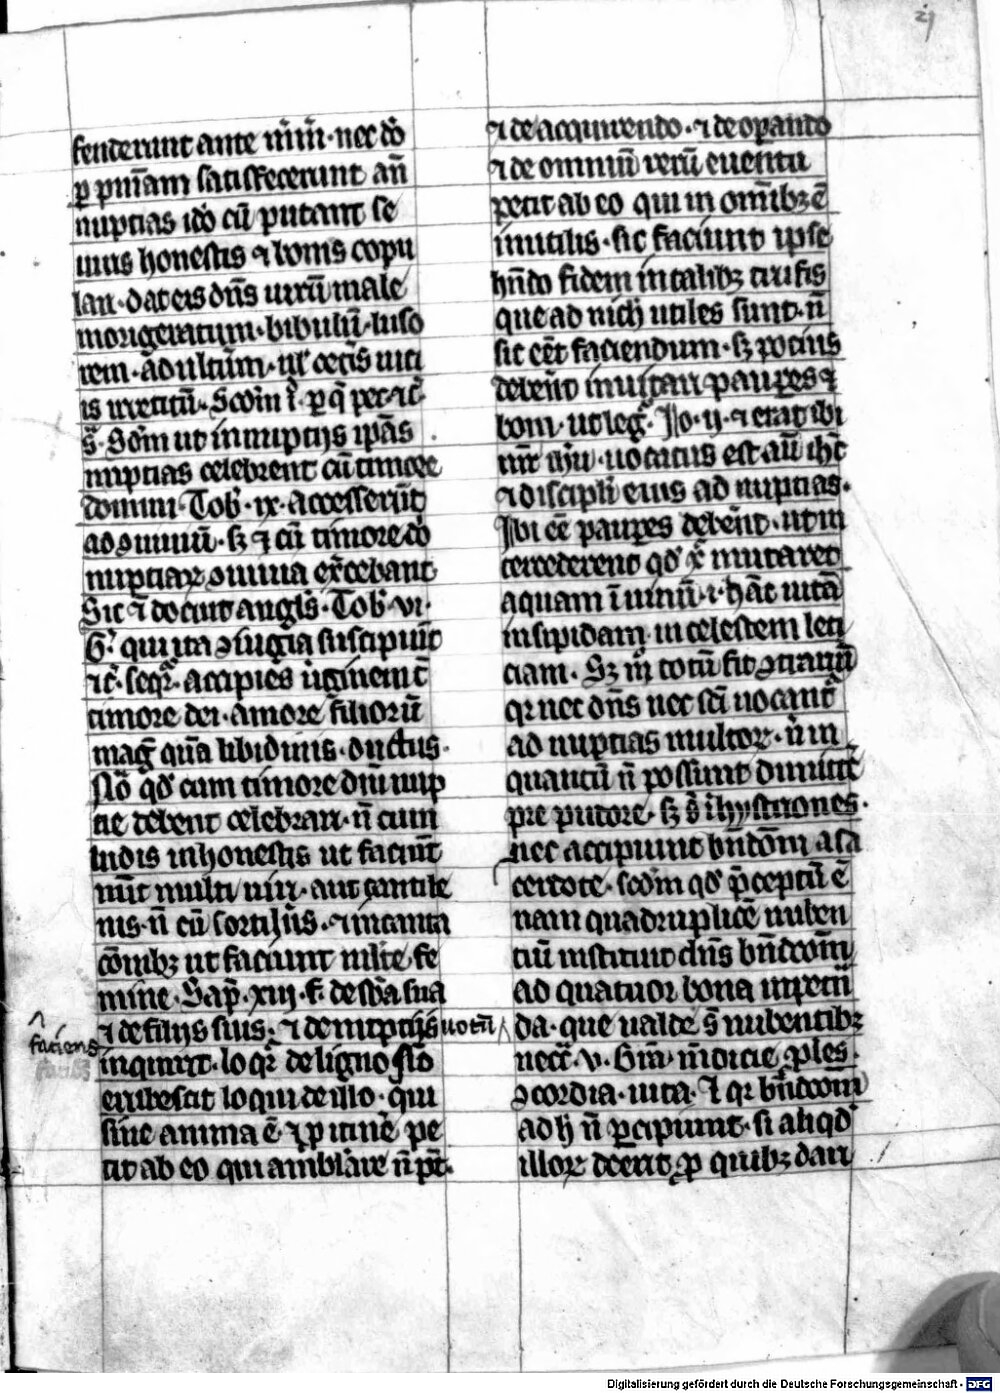 21
fenderunt ante nr̄m nec dō
p pniāam satisfecerunt añ
nuptias iđo cū putant se
uiris honestis ⁊ bonis copu
lari dat eis dñs uirū male
morigeratum bibulū luso
rem adultm̄ ul' cetis uici
is irretitū Scdm
Scdm ut in nuptijs ip̄as
nuptias celebrent cū timore
domini Tob ix accesserūt
ad ꝯuiuiū sꝫ ⁊ cū timore dō
nuptiaꝝ ꝯuiuia ex̄cebant
Sic ⁊ docuit angl's Tob vi
qui ita ꝯiugia suscipiūt
⁊c̄ seqr accipies uiginem c̄
timore dei amore filiorū
maḡ quā libidinis ductus
Nō qđ cum timore dn̄i nup
tie debent celebrari n̄ cum
ludis inhonestis ut faciūt
multi uiri aut cantile
nis n̄ cū sortilijs ⁊ incanta
cōnibꝫ ut faciunt mlīe fe
mine Sap xiij f de sb̄a sua
⁊ de filijs suis ⁊ de nuptijs uotū
faciens
inquirit loqr de ligno Nō
erubescit loqui de illo qui
sine anima ē ⁊ p itinē pe
tit ab eo qui amblare n̄ pt̄
⁊ de acquirendo ⁊ de opando
⁊ de omniū rerū euentu
petit ab eo qui in om̄ibꝫ ē
inutilis sic faciunt ipse
hn̄do fidem in talibꝫ trufis
que ad nich utiles sunt n̄
sic cēt faciendum sꝫ pocius
debent inuitari pauꝑes ⁊
boni ut leg Io ij ⁊ erat ibi
mr̄ ihū uocatus est aū ihc̄
⁊ discipli eius ad nuptias
Ibi cē pauꝑes debent ut in
tercederent qđ xc̄ mutaret
aquam ī uinū i hāc uitā
insipidam in celestem leti
ciam Sꝫ m̊ totū fit ꝯtrariū
qr nec dñs nec sc̄i uocant̄
ad nuptias multoꝝ n̄ in
quantū n̄ possunt dimitte
pre pudore sꝫ histriones
nec accipiunt bn̄dcōm a sa
cerdote scdm qđ pceptū ē
nam quadruplicē nuben
tiū instituit dñs bn̄dcōm
ad quatuor bona inpetn̄
da que ualde s̄ nubentibꝫ
necc̄ v Gn̄i mdicie ples
ꝯcordia uita ⁊ qr bn̄dcōm
ad h̄ n̄ pcipiunt si aliqđ
illoꝝ deerit p quibꝫ dari
Digitalisierung gefördert durch die Deutsche Forschungsgemeinschaft - DFG